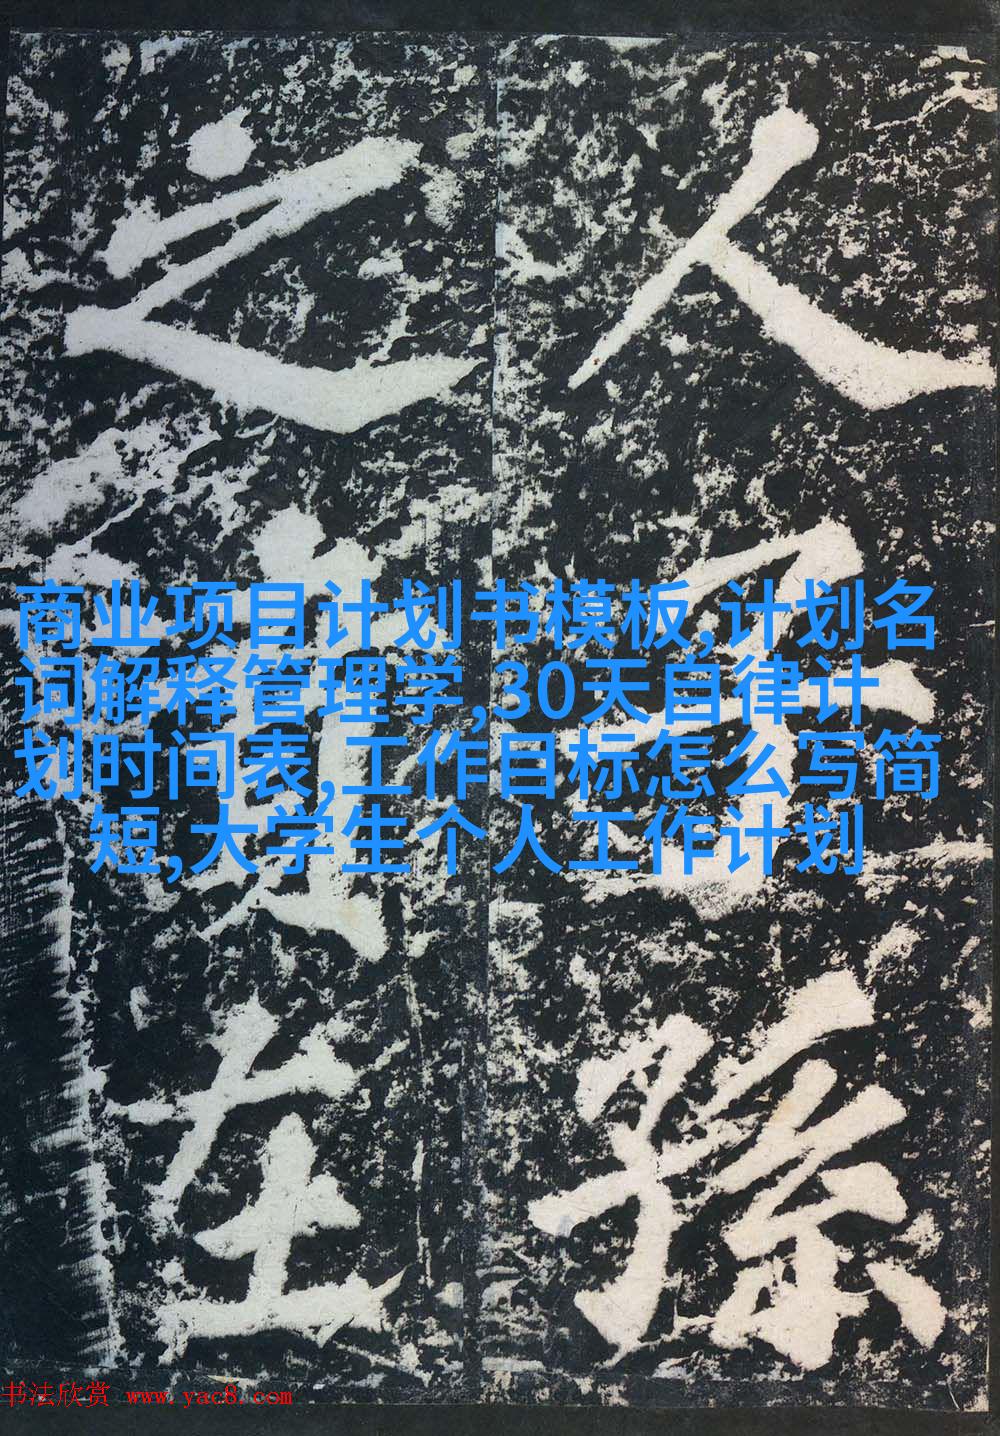 人孫
之在
商业项目计划书模板,计划名
词解释管理学,30天自律计
划时间表,工作目标怎么写简
短,大学生个人工作计划
书法欣赏 www.yac8.com